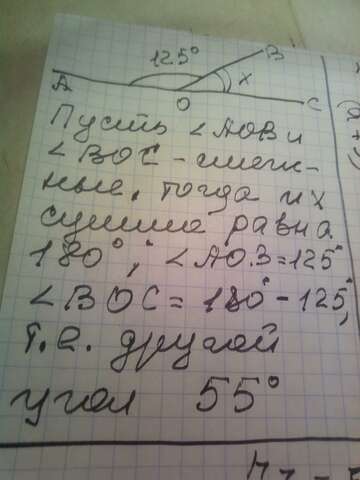 125°
B
A
x
O
C
Пусть ∠AOB и
∠BOC - смеж-
ные, тогда их
сумма равна
180°, ∠AOB = 125°
∠BOC = 180° - 125°,
т.е. другой
угол 55°